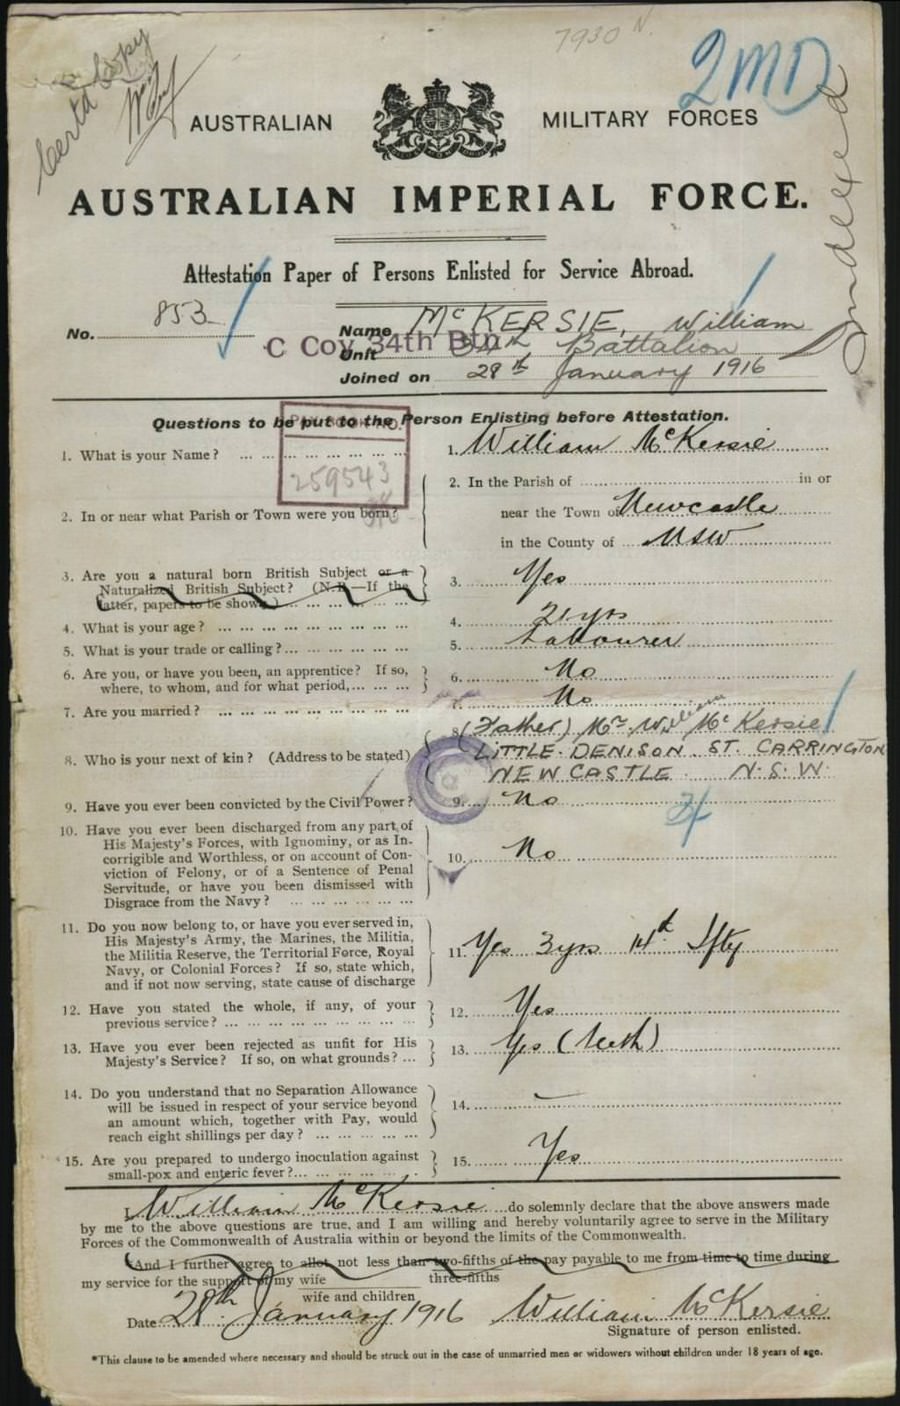 Certd Copy
7930 N.
2MD
Indexed
AUSTRALIAN MILITARY FORCES
AUSTRALIAN IMPERIAL FORCE.
Attestation Paper of Persons Enlisted for Service Abroad.
No. 853
Name McKERSIE, William
C Coy 34th Btn.
Unit 34th Battalion
Joined on 28th January 1916
Questions to be put to the Person Enlisting before Attestation.
PAY BOOK NO.
259543
1. What is your Name? ... ... ... ... ... ...
1. William McKersie
2. In or near what Parish or Town were you born?
2. In the Parish of ... in or
near the Town of Newcastle
in the County of ... NSW
3. Are you a natural born British Subject or a
Naturalized British Subject? (N.B.—If the
latter, papers to be shown.) ... ... ... ...
3. Yes
4. What is your age? ... ... ... ... ... ...
4. 21 yrs
5. What is your trade or calling? ... ... ... ...
5. Labourer
6. Are you, or have you been, an apprentice? If so,
where, to whom, and for what period, ... ... ...
6. No
7. Are you married? ... ... ... ... ... ...
7. No
8. Who is your next of kin? (Address to be stated)
8. (Father) Mr William McKersie
LITTLE DENISON ST. CARRINGTON
NEWCASTLE N.S.W.
9. Have you ever been convicted by the Civil Power?
9. No
10. Have you ever been discharged from any part of
His Majesty's Forces, with Ignominy, or as In-
corrigible and Worthless, or on account of Con-
viction of Felony, or of a Sentence of Penal
Servitude, or have you been dismissed with
Disgrace from the Navy? ... ... ... ...
10. No
11. Do you now belong to, or have you ever served in,
His Majesty's Army, the Marines, the Militia,
the Militia Reserve, the Territorial Force, Royal
Navy, or Colonial Forces? If so, state which,
and if not now serving, state cause of discharge
11. Yes 3yrs 14th Ifty
12. Have you stated the whole, if any, of your
previous service? ... ... ... ... ... ...
12. Yes
13. Have you ever been rejected as unfit for His
Majesty's Service? If so, on what grounds? ...
13. Yes (Teeth)
14. Do you understand that no Separation Allowance
will be issued in respect of your service beyond
an amount which, together with Pay, would
reach eight shillings per day? ... ... ... ...
14. —
15. Are you prepared to undergo inoculation against
small-pox and enteric fever? ... ... ... ...
15. Yes
I, William McKersie do solemnly declare that the above answers made
by me to the above questions are true, and I am willing and hereby voluntarily agree to serve in the Military
Forces of the Commonwealth of Australia within or beyond the limits of the Commonwealth.
*And I further agree to allot not less than two-fifths of the pay payable to me from time to time during
three-fifths
my service for the support of my wife
wife and children
Date 28th January 1916 William McKersie
Signature of person enlisted.
*This clause to be amended where necessary and should be struck out in the case of unmarried men or widowers without children under 18 years of age.